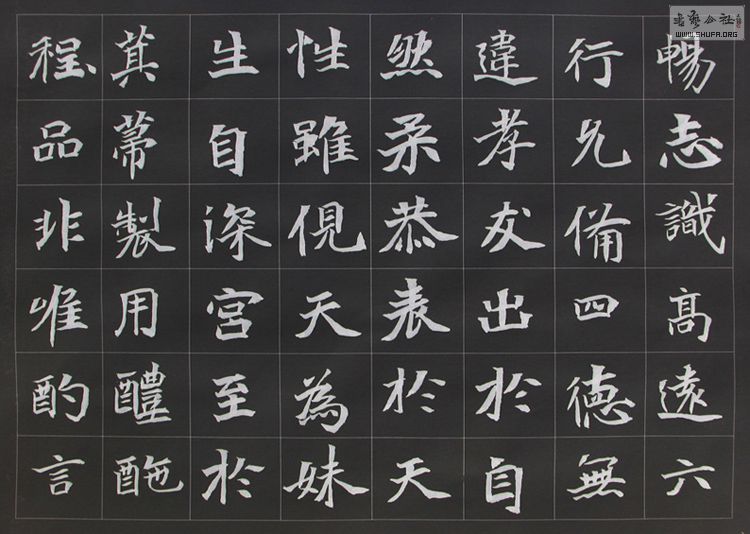 暢志識髙遠六
行允備四德無
違孝友出於自
然柔恭表於天
性雖俔天為妹
生自深宮至於
萁菷製用醴酏
程品非唯酌言
書藝公社
WWW.SHUFA.ORG